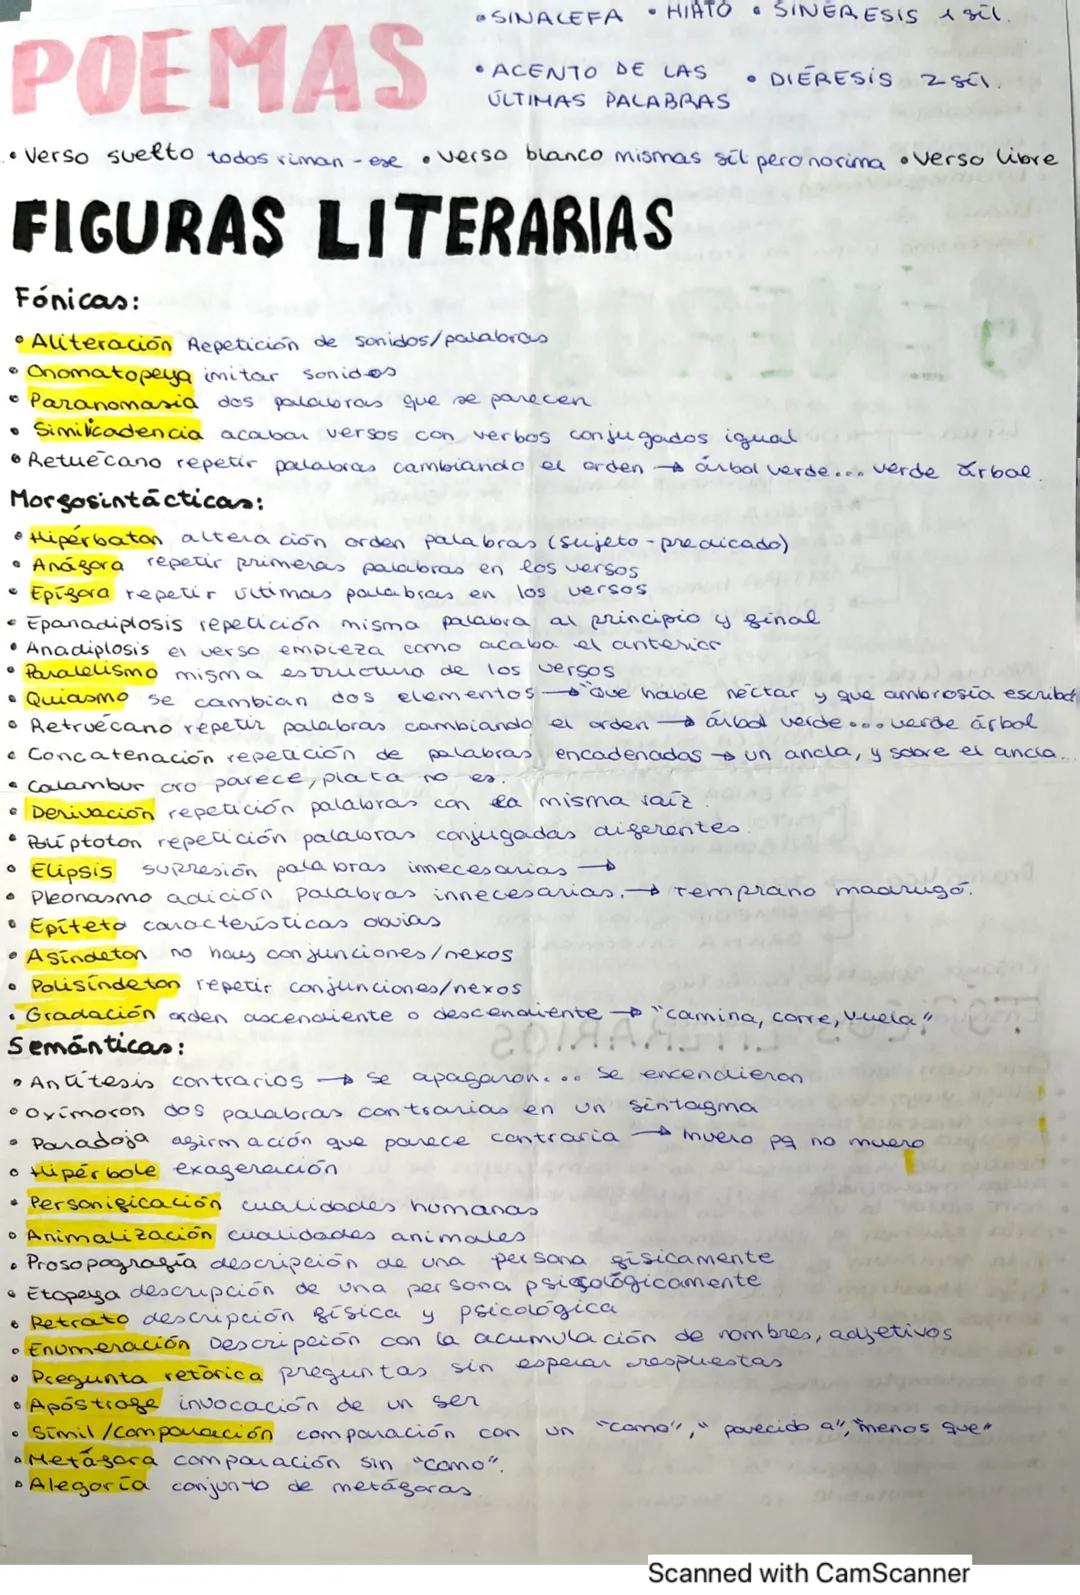 • SINALEFA • HIATO • SINÉRESIS 1 síl.
POEMAS
• ACENTO DE LAS ÚLTIMAS PALABRAS • DIÉRESIS 2 síl.
• Verso suelto todos riman - ese • Verso blanco mismas síl pero no rima • Verso libre
FIGURAS LITERARIAS
Fónicas:
• Aliteración Repetición de sonidos/palabras
• Onomatopeya imitar sonidos
• Paranomasia dos palabras que se parecen
• Similicadencia acabar versos con verbos conjugados igual
• Retruécano repetir palabras cambiando el orden → árbol verde... verde árbol.
Morfosintácticas:
• Hipérbaton alteración orden palabras (sujeto - predicado)
• Anáfora repetir primeras palabras en los versos
• Epífora repetir últimas palabras en los versos
• Epanadiplosis repetición misma palabra al principio y final
• Anadiplosis el verso empieza como acaba el anterior
• Paralelismo misma estructura de los versos
• Quiasmo se cambian dos elementos → "Que hable néctar y que ambrosía escriba
• Retruécano repetir palabras cambiando el orden → árbol verde... verde árbol
• Concatenación repetición de palabras encadenados → un ancla, y sobre el ancla...
• Calambur oro parece, plata no es.
• Derivación repetición palabras con la misma raíz.
• Políptoton repetición palabras conjugadas diferentes.
• Elipsis supresión palabras innecesarias →
• Pleonasmo adición palabras innecesarias. → temprano madrugó.
• Epíteto características obvias
• Asíndeton no hay conjunciones/nexos
• Polisíndeton repetir conjunciones/nexos
• Gradación orden ascendiente o descendiente → "camina, corre, vuela"
Semánticas:
• Antítesis contrarios → se apagaron... se encendieron
• Oxímoron dos palabras contrarias en un sintagma
• Paradoja afirmación que parece contraria → muero pq no muero
• Hipérbole exageración
• Personificación cualidades humanas
• Animalización cualidades animales
• Prosopografía descripción de una persona físicamente
• Etopeya descripción de una persona psicológicamente
• Retrato descripción física y psicológica
• Enumeración Descripción con la acumulación de nombres, adjetivos
• Pregunta retórica preguntas sin esperar respuestas
• Apóstrofe invocación de un ser
• Símil/comparación comparación con un "como", "parecido a", "menos que"
• Metáfora comparación sin "como".
• Alegoría conjunto de metáforas
Scanned with CamScanner